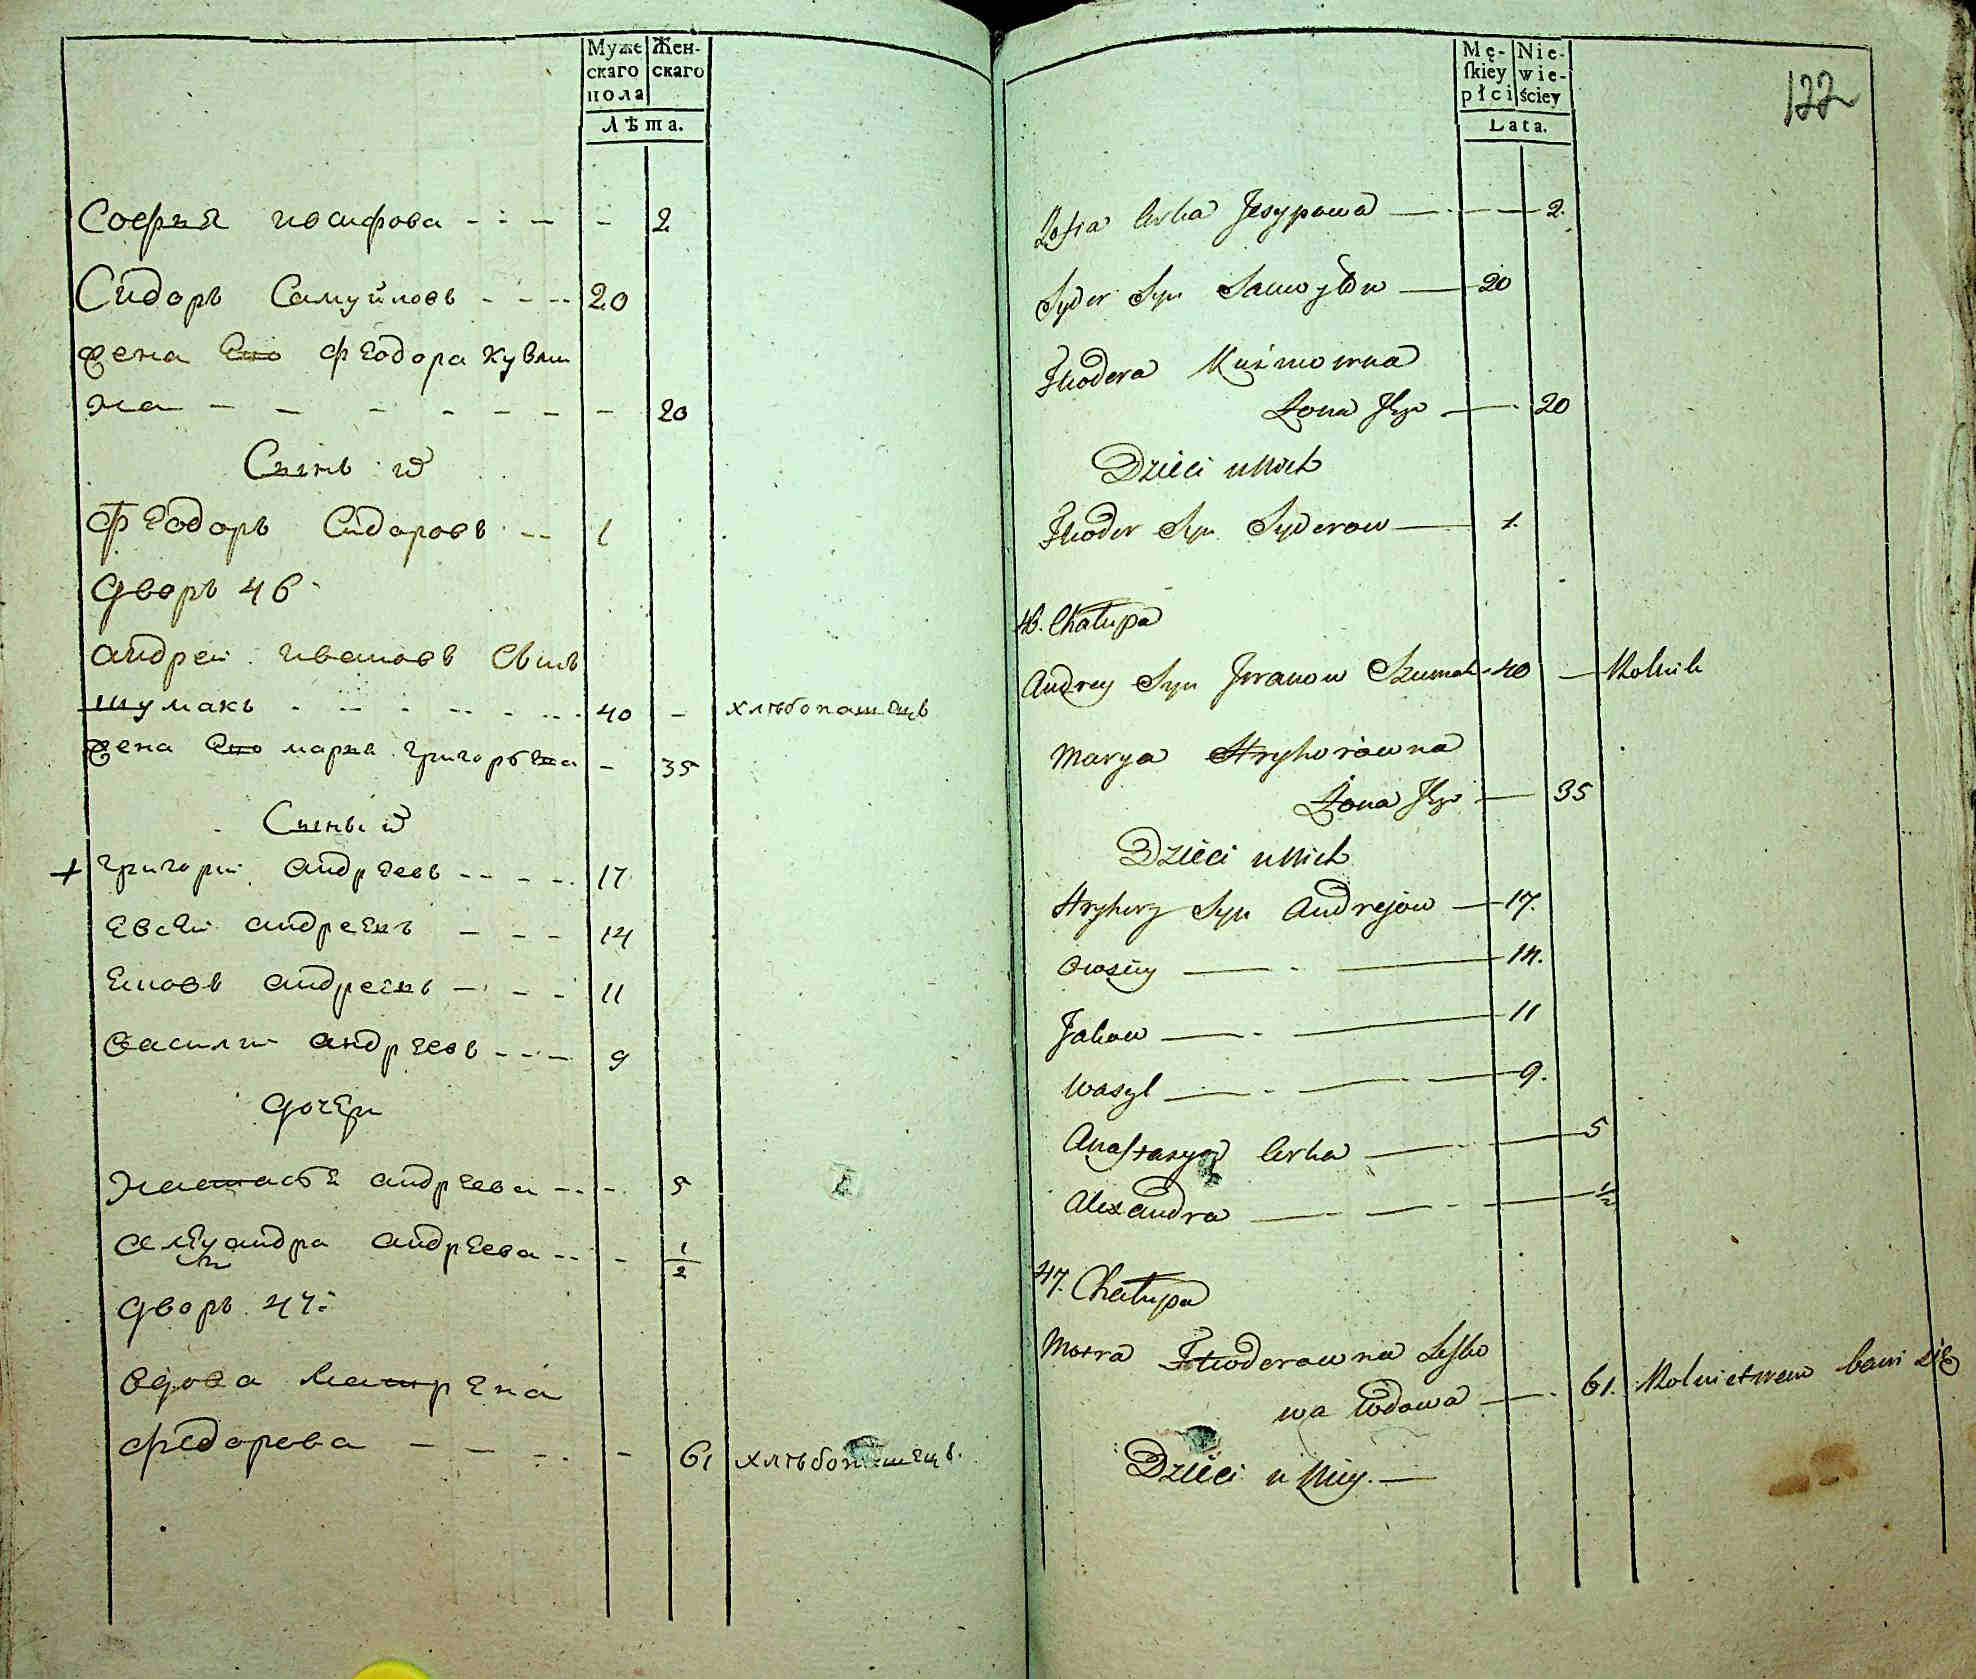 Муже
скаго
пола
Жен-
скаго
Лѣта.
Софья иосифова - - - - 2
Сидоръ Самуйловъ - - - 20
жена Его Феодора кузми
на - - - - - - - 20
Сынъ
Феодоръ Сидоровъ - - 1
Дворъ 46
андрей ивановъ Сынъ
шумакъ - - - - - - 40 - хлѣбопашецъ
жена Его марья григорьева - 35
Сыны
+ григорий андреевъ - - - - 17
Евсей андреевъ - - - 14
Яковъ андреевъ - - - 11
василий андреевъ - - - 9
Дочери
Настасья андреева - - - 5
александра андреева - - - 1/2
Дворъ 47:
вдова Матрена
Федорова - - - - - 61 хлѣбопашецъ.
Mę-
ſkiey
płci
Nie-
wie-
ściey
Lata.
122
Zofia Corka Jesypowa — 2.
Syder Syn Samoylow — 20
Fteodera Kuźmowna
Żona Jego — 20
Dzieci u Nich
Fteoder Syn Syderow — 1.
46. Chałupa
Andrey Syn Jwanow Szumak - 40 — Rolnik
Marya Hryhorowna
Żona Jego — 35
Dzieci u Nich
Hryhory Syn Andrejow — 17.
Owsiey — 14.
Jakow — 11
Wasyl — 9.
Anastasya Corka — 5
Alexandra — 1/2
47. Chałupa
Motra Fteoderowna
wa Wdowa — 61. Rolnictwem bawi się
Dzieci u Niey. —